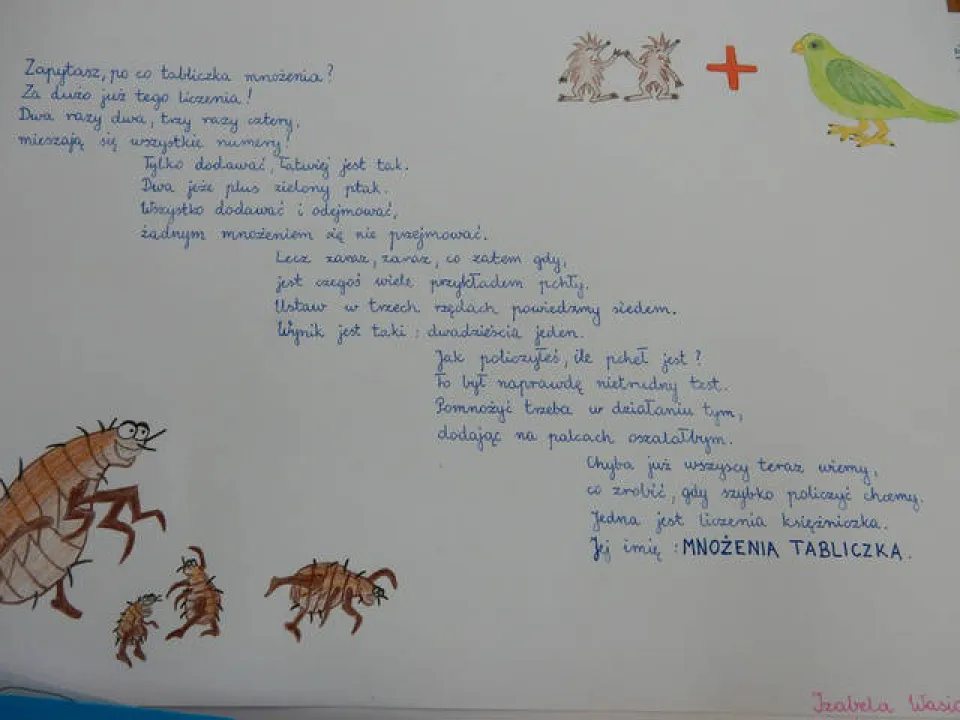 Zapytasz, po co tabliczka mnożenia?
Za dużo już tego liczenia!
Dwa razy dwa, trzy razy cztery,
mieszają się wszystkie numery!
Tylko dodawać, łatwiej jest tak.
Dwa jeże plus zielony ptak.
Wszystko dodawać i odejmować,
żadnym mnożeniem się nie przejmować.
Lecz zaraz, zaraz, co zatem gdy,
jest czegoś wiele przykładem pchły.
Ustaw w trzech rzędach powiedzmy siedem.
Wynik jest taki : dwadzieścia jeden.
Jak policzyłeś, ile pcheł jest?
To był naprawdę nietrudny test.
Pomnożyć trzeba w działaniu tym,
dodając na palcach oszalałbym.
Chyba już wszyscy teraz wiemy,
co zrobić, gdy szybko policzyć chcemy.
Jedna jest liczenia księżniczka.
Jej imię : MNOŻENIA TABLICZKA.
Izabela